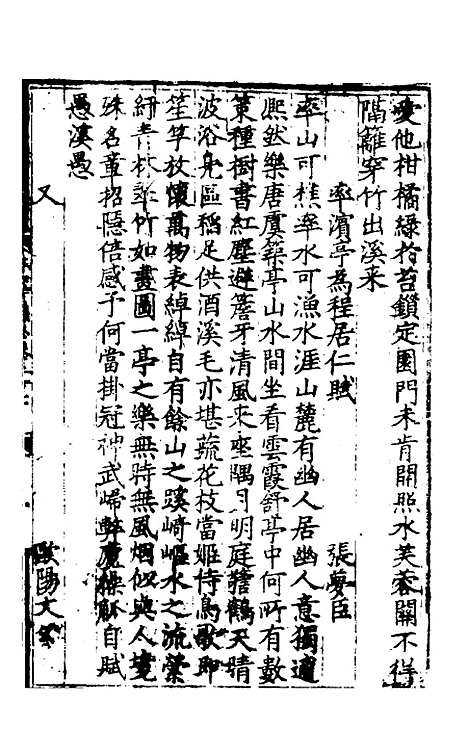 愛他柑橘綠於苔鎖定園門未肯開照水芙蓉關不得
隔籬穿竹出溪来
率濵亭為程居仁賦 張夢臣
率山可樵率水可漁水涯山麓有幽人居幽人意獨適
熙然樂唐虞築亭山水間坐看雲霞舒亭中何所有數
策種樹書紅塵避簷牙清風来座隅月明庭鶴天晴
波浴鳬區稻足供酒溪毛亦堪蔬花枝當姬侍鳥歌即
笙竽放懷萬物表綽綽自有餘山之蹊崎嶇水之流縈
紆青林翠竹如畫圖一亭之樂無時無風烟似與人
殊名章招隱倍感予何當掛冠神武歸自賦
愚溪愚
又 歐陽文